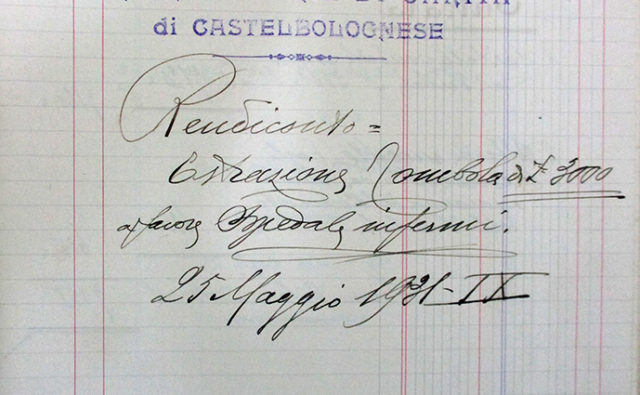 DI CARITÀ
di CASTELBOLOGNESE
Rendiconto =
Estrazione Tombola di £ 3000
a favore Ospedale infermi.
25 Maggio 1931-IX